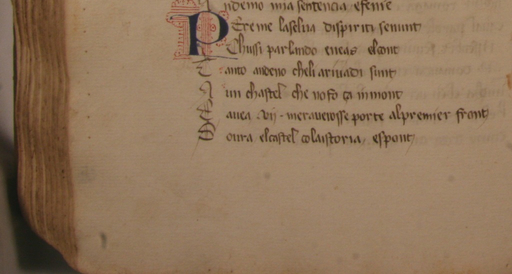 ndemo mia sentencia efenie
Per me la selua dispiriti se vunt
Chussi parlando eneas elont
anto andeno cheli arivadi sunt
un chastel che no fo ça in mont
avea .vij. meraveiosse porte al premier front
oura el castel co la istoria espont